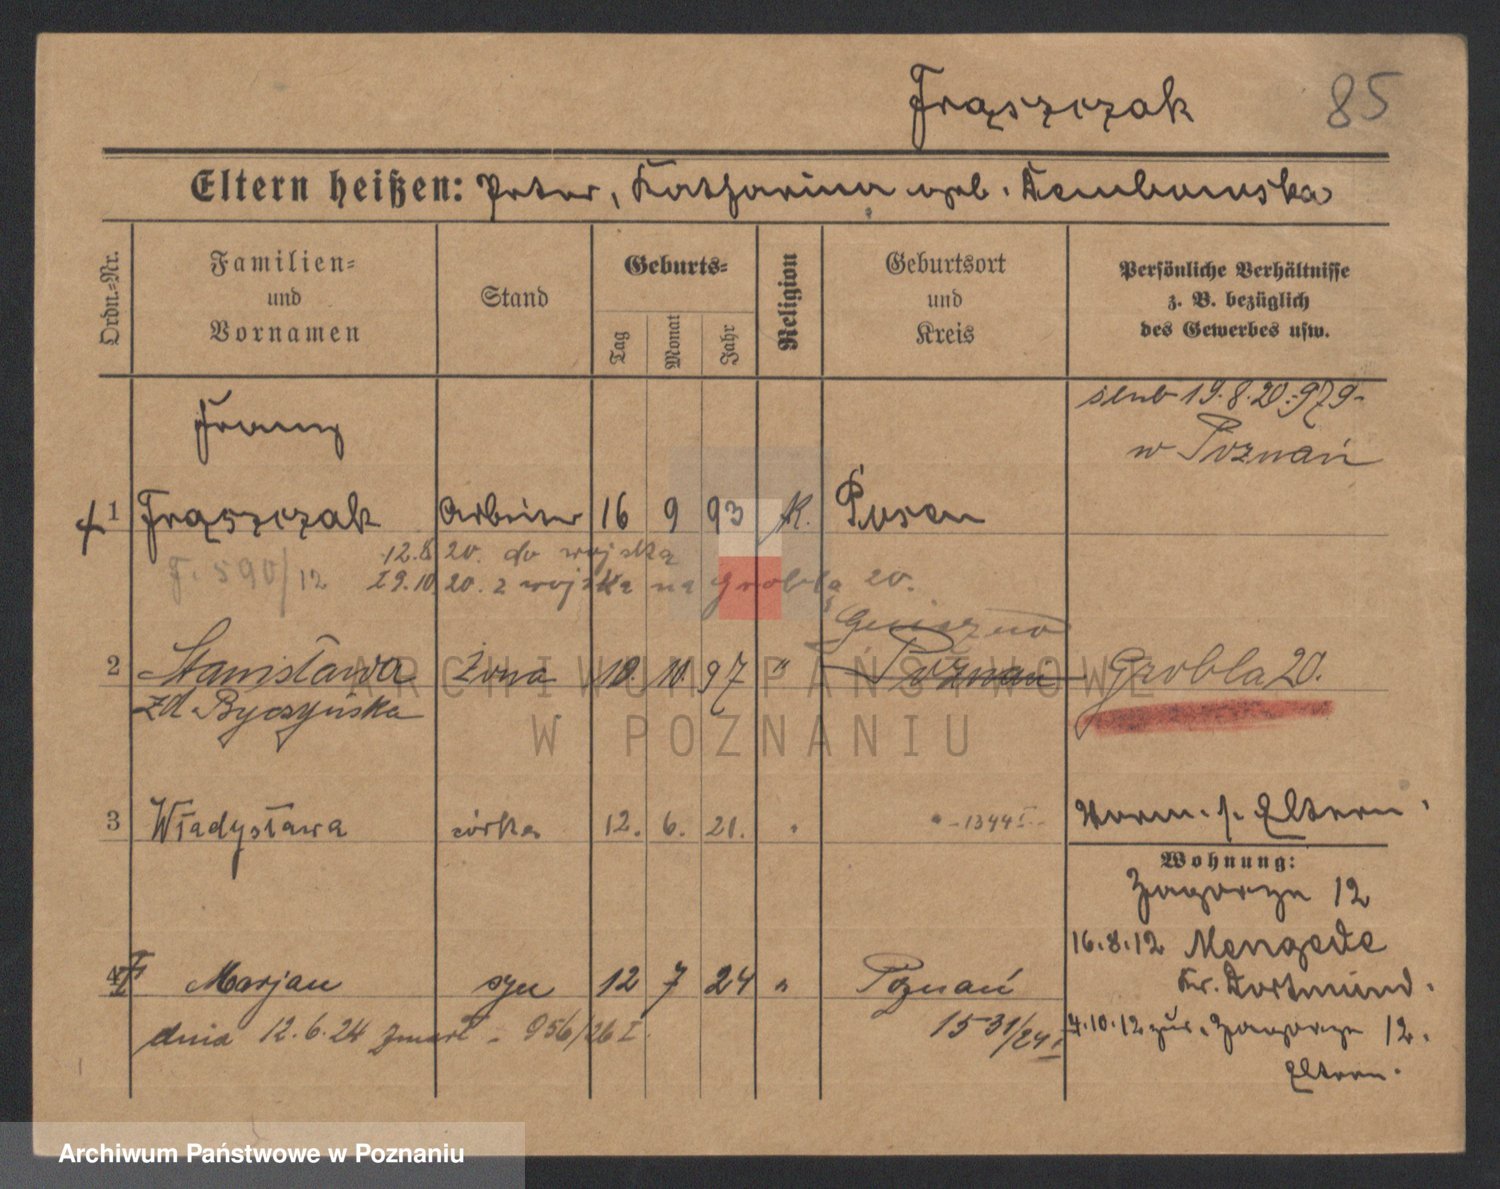 Frąszczak 85
Eltern heißen: Peter, Katharina geb. Dembowska
Ordn.-Nr.
Familien-
und
Vornamen
Stand
Geburts-
Tag
Monat
Jahr
Religion
Geburtsort
und
Kreis
Persönliche Verhältnisse
z. B. bezüglich
des Gewerbes usw.
ślub 19.8.20. 979
w Poznań
Franz
1 Frąszczak Arbeiter 16 9 93 K. Posen
12.8.20. do wojska
F. 590/12 29.10.20. z wojska na Grobla 20.
Gniezno
2 Stanisława żona 10. 10. 97 " Poznań Grobla 20.
zd. Byczyńska
3 Władysława córka 12. 6. 21. 1344 I Worm. s. Eltern.
Wohnung:
Zagorze 12
16.8.12 Mengede
Kr. Dortmund.
4 Marjan syn 12 7 24 " Poznań
1531/24 I
dnia 12.6.24 zmarł - 956/26 I.
4.10.12 zur. Zagorze 12.
Eltern.
ARCHIWUM PAŃSTWOWE
W POZNANIU
Archiwum Państwowe w Poznaniu